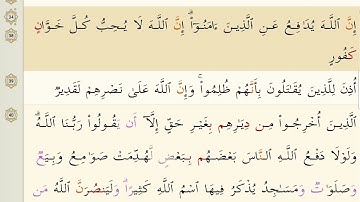 إِنَّ ٱللَّهَ يُدَٰفِعُ عَنِ ٱلَّذِينَ ءَامَنُوٓا۟ ۗ إِنَّ ٱللَّهَ لَا يُحِبُّ كُلَّ خَوَّانٍ
كَفُورٍ
أُذِنَ لِلَّذِينَ يُقَٰتَلُونَ بِأَنَّهُمْ ظُلِمُوا۟ ۚ وَإِنَّ ٱللَّهَ عَلَىٰ نَصْرِهِمْ لَقَدِيرٌ
ٱلَّذِينَ أُخْرِجُوا۟ مِن دِيَٰرِهِم بِغَيْرِ حَقٍّ إِلَّآ أَن يَقُولُوا۟ رَبُّنَا ٱللَّهُ ۗ
وَلَوْلَا دَفْعُ ٱللَّهِ ٱلنَّاسَ بَعْضَهُم بِبَعْضٍ لَّهُدِّمَتْ صَوَٰمِعُ وَبِيَعٌ
وَصَلَوَٰتٌ وَمَسَٰجِدُ يُذْكَرُ فِيهَا ٱسْمُ ٱللَّهِ كَثِيرًا ۗ وَلَيَنصُرَنَّ ٱللَّهُ مَن